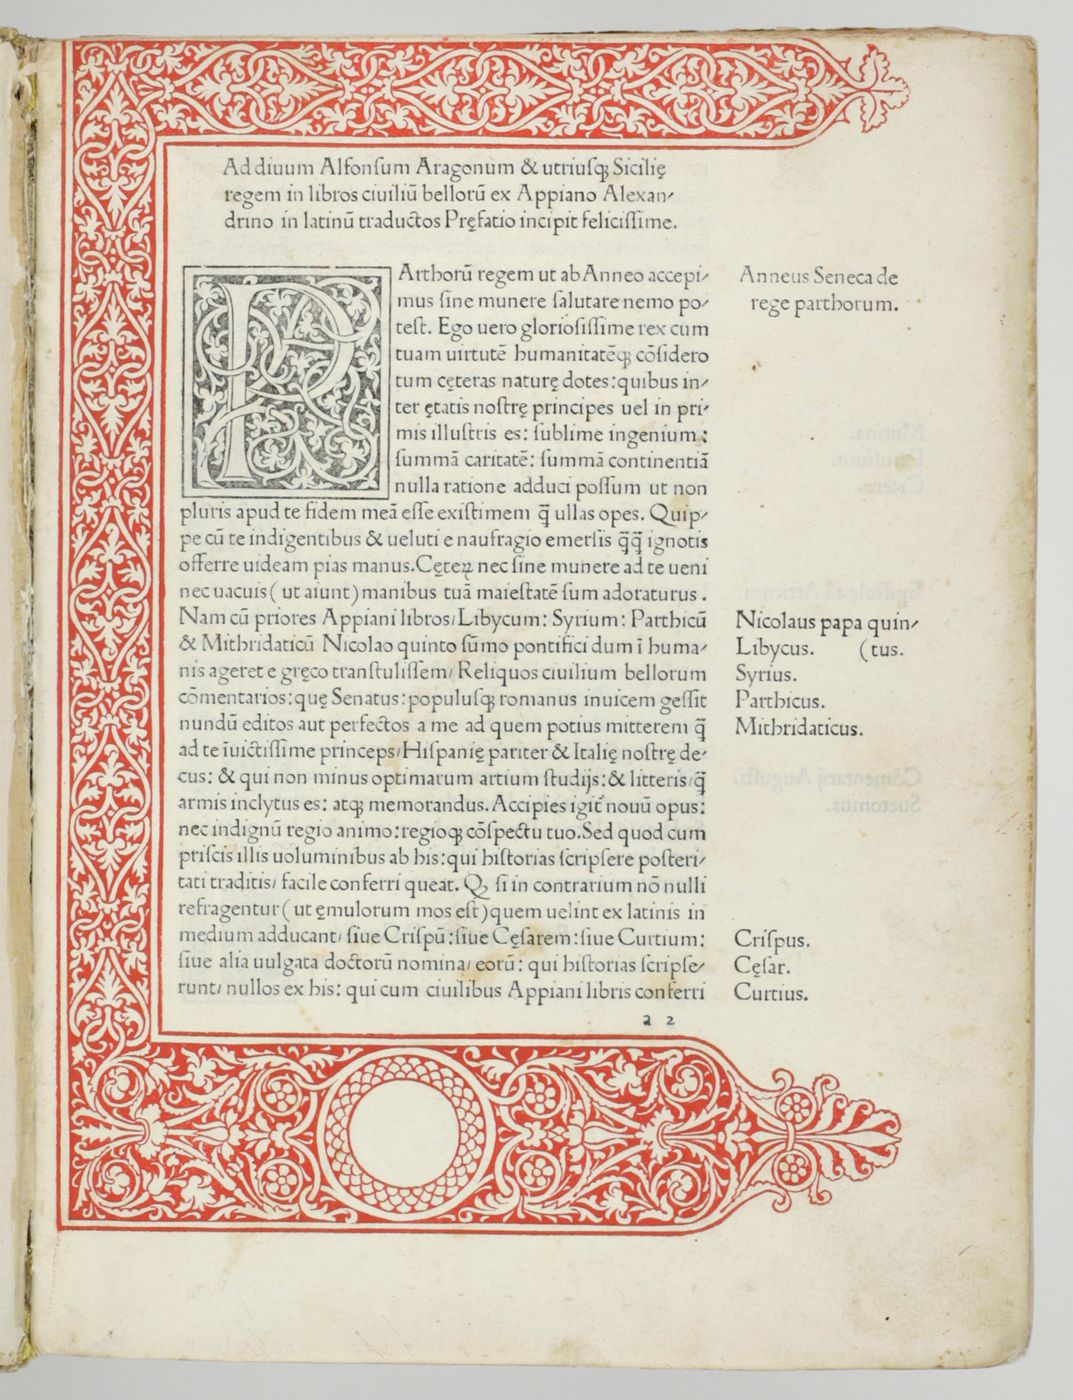 Ad diuum Alfonſum Aragonum & utriuſqꝫ Sicilię
regem in libros ciuiliū bellorū ex Appiano Alexan⸗
drino in latinū traductos Pręfatio incipit feliciſſime.
PArthorū regem ut ab Anneo accepi⸗
mus ſine munere ſalutare nemo po⸗
teſt. Ego uero glorioſiſſime rex cum
tuam uirtutē humanitatēqꝫ cōſidero
tum cęteras naturę dotes: quibus in⸗
ter ętatis noſtrę principes uel in pri⸗
mis illuſtris es: ſublime ingenium:
ſummā caritatē: ſummā continentiā
nulla ratione adduci poſſum ut non
pluris apud te fidem meā eſſe exiſtimem q̄ ullas opes. Quip⸗
pe cū te indigentibus & ueluti e naufragio emerſis q̄q̄ ignotis
offerre uideam pias manus. Cęteꝝ nec ſine munere ad te ueni
nec uacuis (ut aiunt) manibus tuā maieſtatē ſum adoraturus.
Nam cū priores Appiani libros/ Libycum: Syrium: Parthicū
& Mithridaticū Nicolao quinto ſūmo pontifici dum ī huma⸗
nis ageret e gręco tranſtuliſſem/ Reliquos ciuilium bellorum
cōmentarios: quę Senatus: populuſqꝫ romanus inuicem geſſit
nundū editos aut perfectos a me ad quem potius mitterem q̄
ad te īuictiſſime princeps/ Hiſpanię pariter & Italię noſtrę de⸗
cus: & qui non minus optimarum artium ſtudijs: & litteris/ q̄
armis inclytus es: atqꝫ memorandus. Accipies igit᷑ nouū opus:
nec indignū regio animo: regioqꝫ cōſpectu tuo. Sed quod cum
priſcis illis uoluminibus ab his: qui hiſtorias ſcripſere poſteri⸗
tati traditis/ facile conferri queat. Qꝫ ſi in contrarium nō nulli
refragentur (ut ęmulorum mos eſt) quem uelint ex latinis in
medium adducant/ ſiue Criſpū: ſiue Cęſarem: ſiue Curtium:
ſiue alia uulgata doctorū nomina/ eorū: qui hiſtorias ſcripſe⸗
runt/ nullos ex his: qui cum ciuilibus Appiani libris conferri
a 2
Anneus Seneca de
rege parthorum.
Nicolaus papa quin⸗
Libycus. (tus.
Syrius.
Parthicus.
Mithridaticus.
Criſpus.
Cęſar.
Curtius.